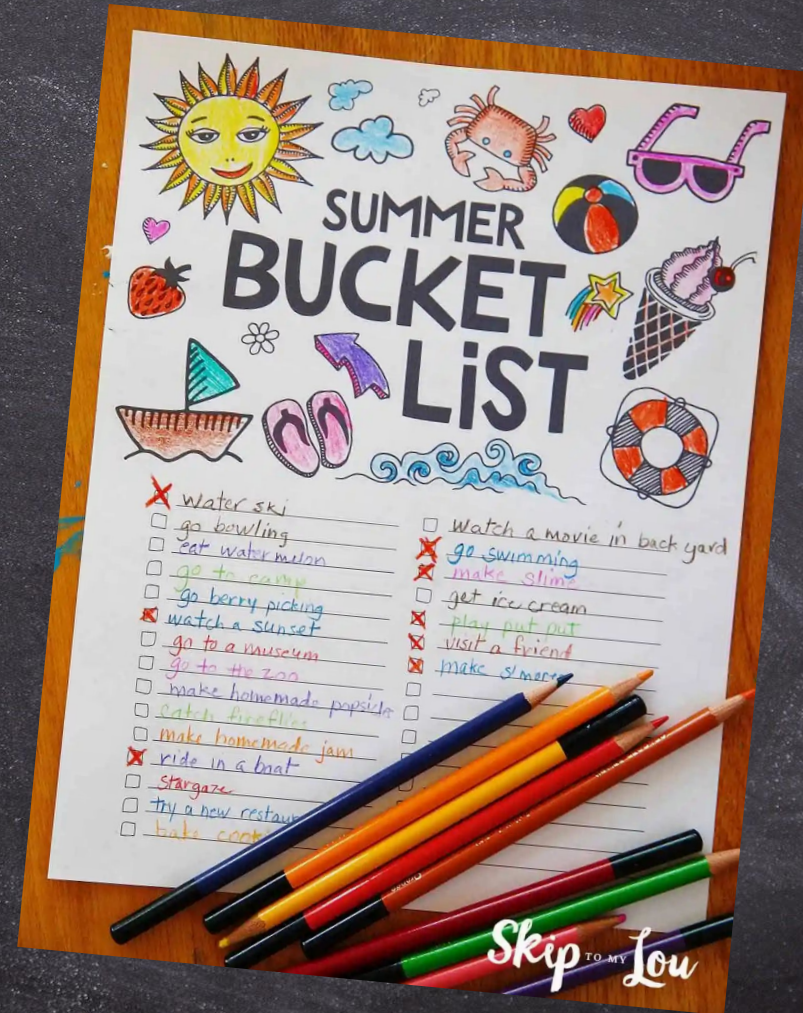 SUMMER
BUCKET
LiST
water ski
go bowling
eat watermelon
go to camp
go berry picking
watch a sunset
go to a museum
go to the zoo
make homemade popsicles
catch fireflies
make homemade jam
ride in a boat
stargaze
try a new
bake
watch a movie in back yard
go swimming
make slime
get ice cream
play put put
visit a friend
make s'mores
Skip TO MY Lou